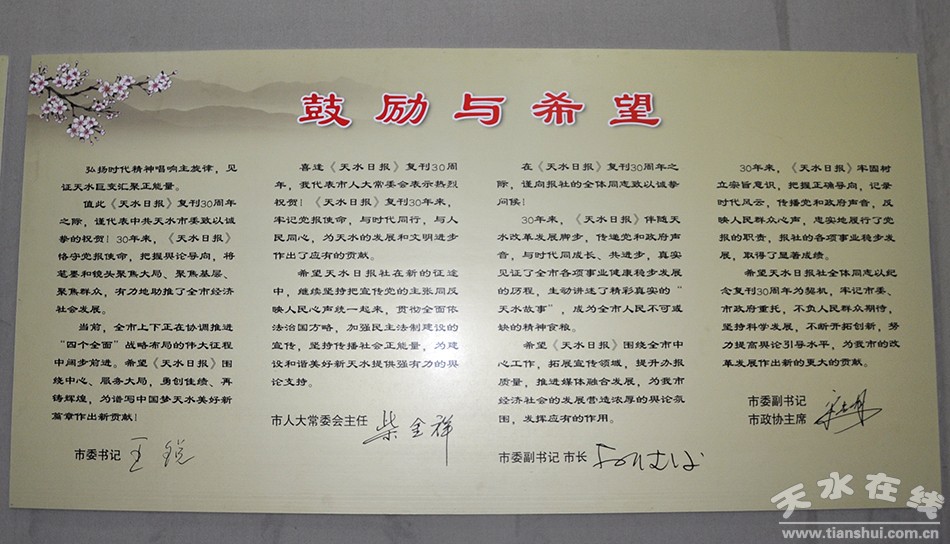 鼓励与希望
弘扬时代精神唱响主旋律，见
证天水巨变汇聚正能量。
值此《天水日报》复刊30周年
之际，谨代表中共天水市委致以诚
挚的祝贺！30年来，《天水日报》
恪守党报使命，把握舆论导向，将
笔墨和镜头聚焦大局、聚焦基层、
聚焦群众，有力地助推了全市经济
社会发展。
当前，全市上下正在协调推进
“四个全面”战略布局的伟大征程
中阔步前进。希望《天水日报》围
绕中心、服务大局，勇创佳绩、再
铸辉煌，为谱写中国梦天水美好新
篇章作出新贡献！
市委书记 王锐
喜逢《天水日报》复刊30周
年，我代表市人大常委会表示热烈
祝贺！《天水日报》复刊30年来，
牢记党报使命，与时代同行，与人
民同心，为天水的发展和文明进步
作出了应有的贡献。
希望天水日报社在新的征途
中，继续坚持把宣传党的主张同反
映人民心声统一起来，贯彻全面依
法治国方略，加强民主法制建设的
宣传，坚持传播社会正能量，为建
设和谐美好新天水提供强有力的舆
论支持。
市人大常委会主任 柴金祥
在《天水日报》复刊30周年之
际，谨向报社的全体同志致以诚挚
问候！
30年来，《天水日报》伴随天
水改革发展脚步，传递党和政府声
音，与时代同成长、共进步，真实
见证了全市各项事业健康稳步发展
的历程，生动讲述了精彩真实的“
天水故事”，成为全市人民不可或
缺的精神食粮。
希望《天水日报》围绕全市中
心工作，拓展宣传领域，提升办报
质量，推进媒体融合发展，为我市
经济社会的发展营造浓厚的舆论氛
围，发挥应有的作用。
市委副书记 市长
30年来，《天水日报》牢固树
立宗旨意识，把握正确导向，记录
时代风云，传播党和政府声音，反
映人民群众心声，忠实地履行了党
报的职责，报社的各项事业稳步发
展，取得了显著成绩。
希望天水日报社全体同志以纪
念复刊30周年为契机，牢记市委、
市政府重托，不负人民群众期待，
坚持科学发展，不断开拓创新，努
力提高舆论引导水平，为我市的改
革发展作出新的更大的贡献。
市委副书记
市政协主席
天水在线
www.tianshui.com.cn